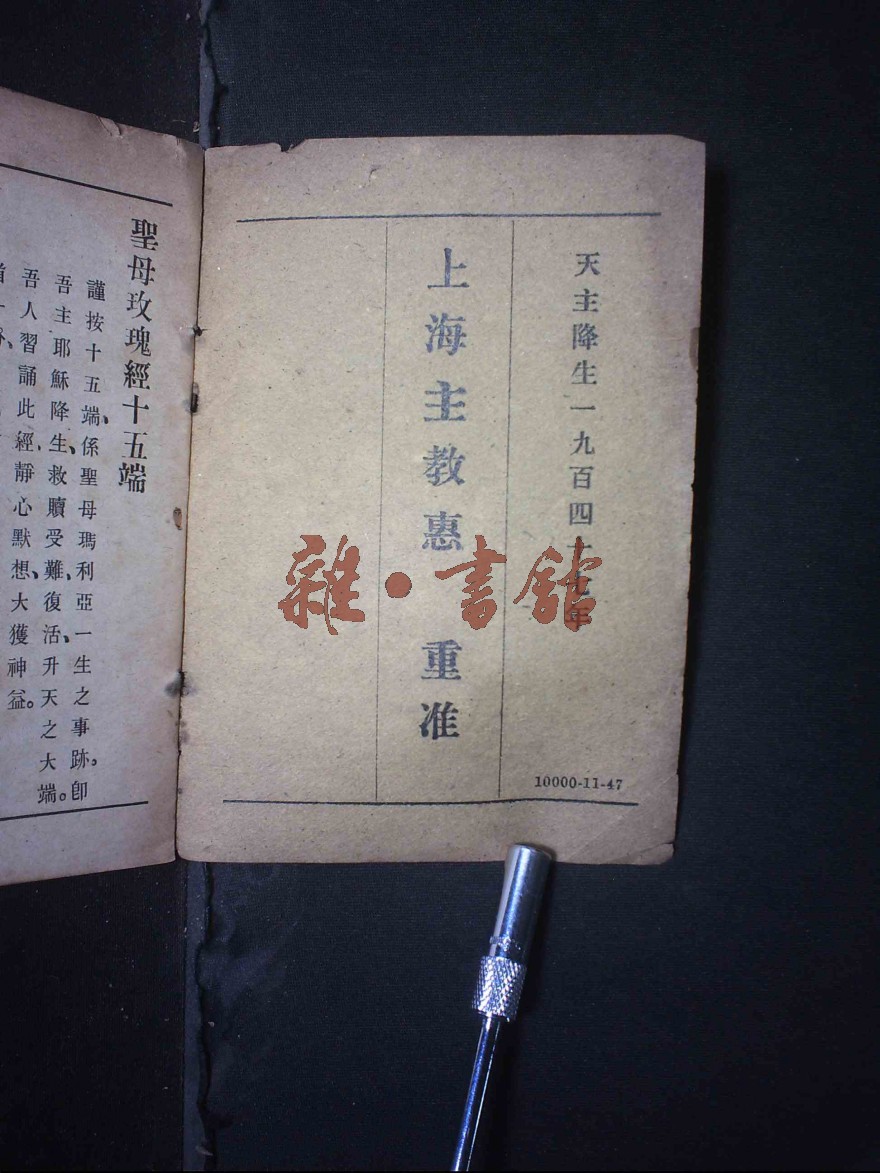 天主降生一九百四十七年
上海主教惠 重准
10000-11-47
聖母玫瑰經十五端
謹按十五端、係聖母瑪利亞一生之事跡。卽
吾主耶穌降生、救贖受難、復活、升天之大端。
吾人習誦此經、靜心默想、大獲神益。
雜·書館